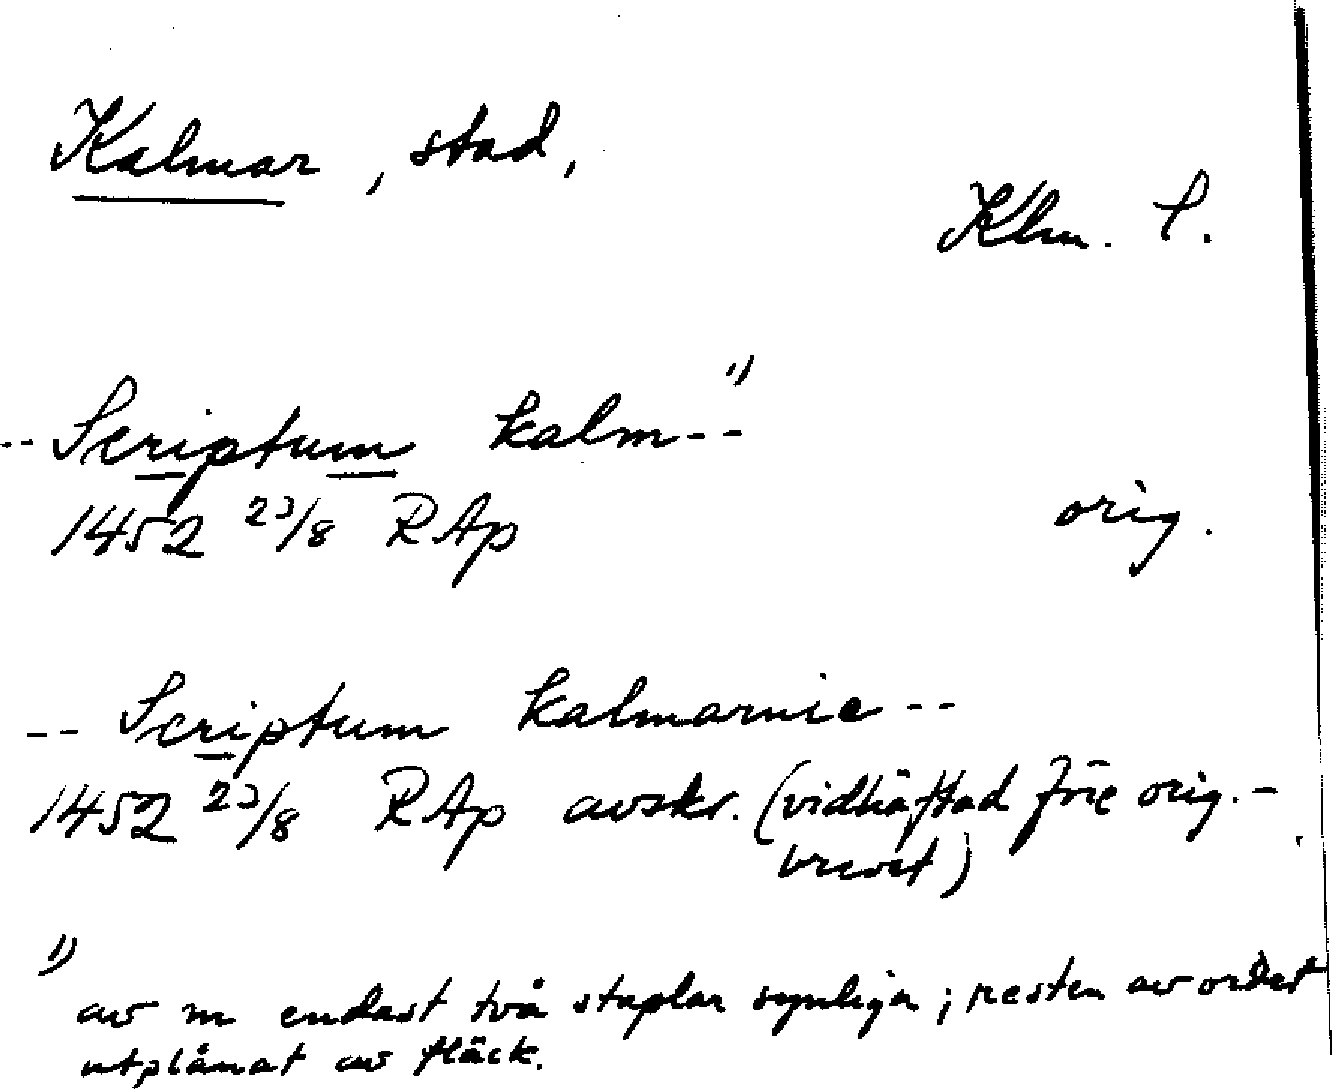 Kalmar, stad,
Klm. l.
-- Scriptum kalm-- 1)
1452 23/8 RAp orig.
-- Scriptum kalmarnie --
1452 23/8 RAp avskr. (vidhäftad före orig.-
brevet)
1)
av m endast två staplar synliga; resten av ordet
utplånat av fläck.